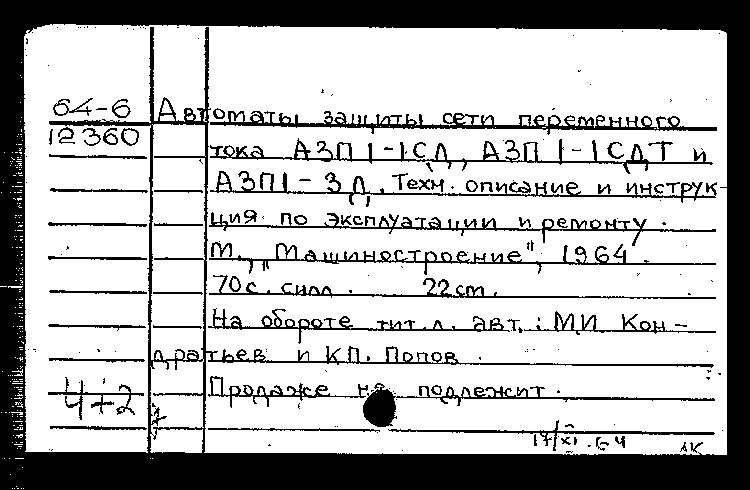 64-6 Автоматы защиты сети переменного
12360
тока АЗП1-1СД, АЗП1-1СДТ и
АЗП1-3Д. Техн. описание и инструк-
ция по эксплуатации и ремонту.
М., "Машиностроение", 1964.
70с. силл. 22cm.
На обороте тит.л. авт.: М.И. Кон-
дратьев и К.П. Попов.
Продаже не подлежит.
4+2
17/XI.64